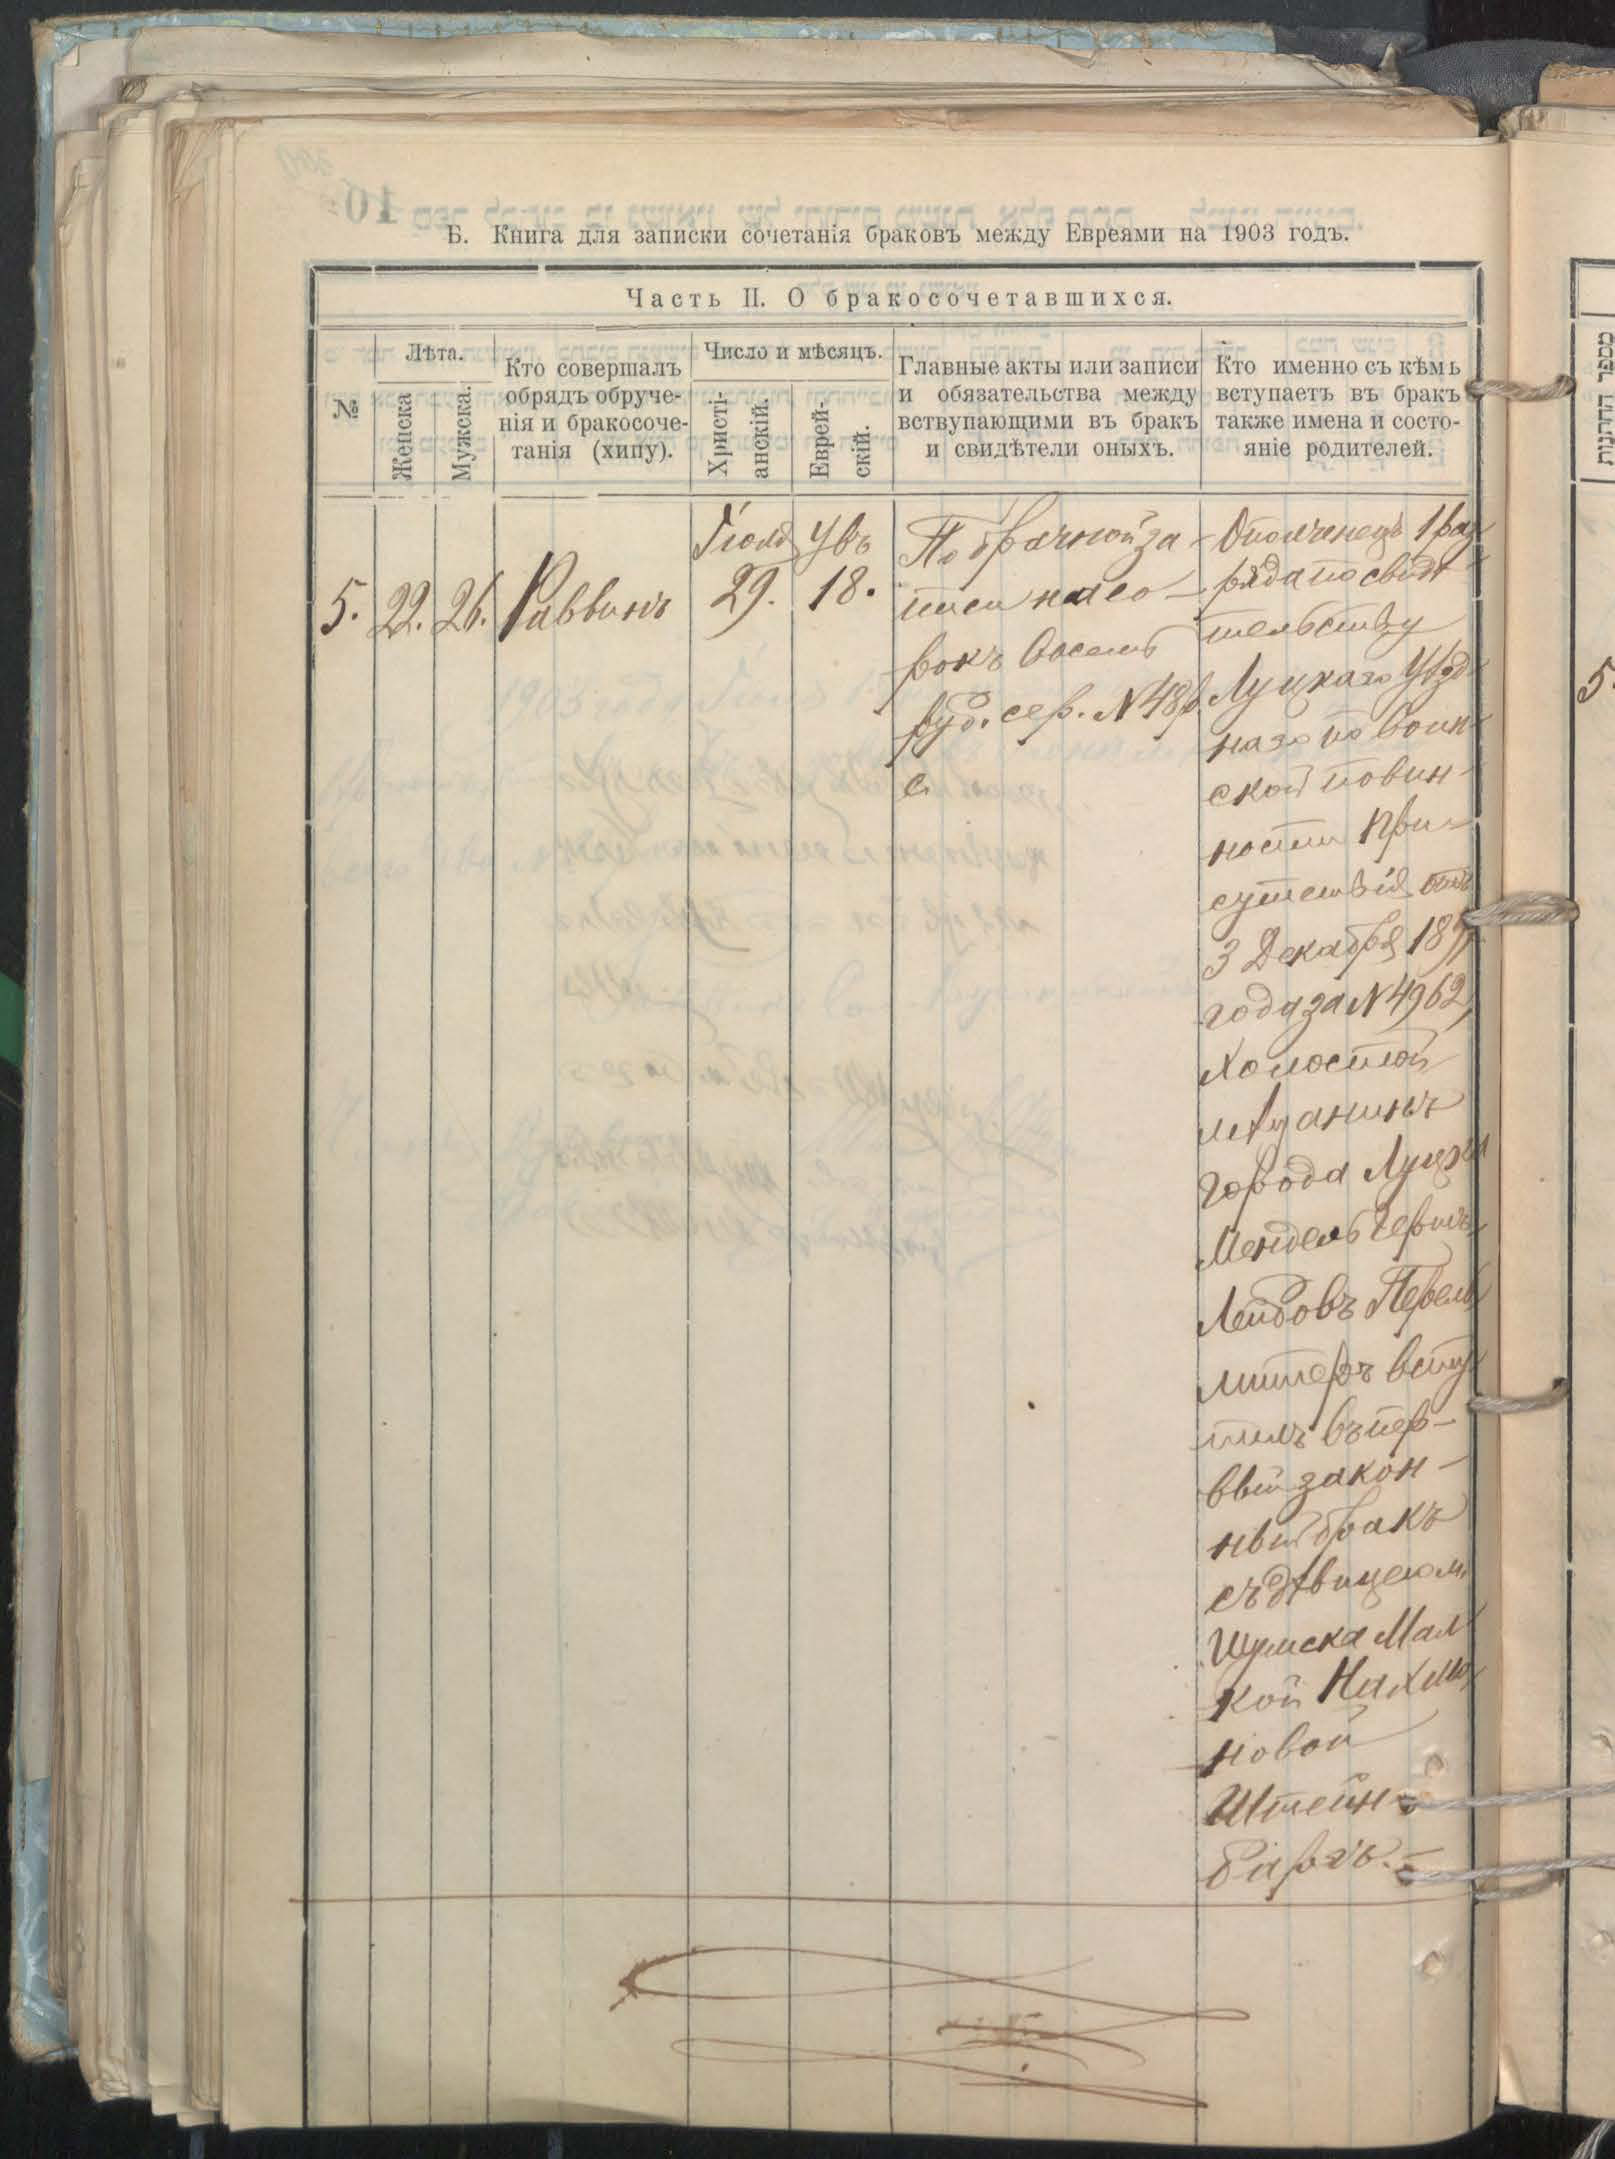 Б. Книга для записки сочетанія браковъ между Евреями на 1903 годъ.
Часть II. О бракосочетавшихся.
№
Лѣта.
Женска
Мужска.
Кто совершалъ
обрядъ обруче-
нія и бракосоче-
танія (хипу).
Число и мѣсяцъ.
Христі-
анскій.
Еврей-
скій.
Главные акты или записи
и обязательства между
вступающими въ бракъ
и свидѣтели оныхъ.
Кто именно съ кѣмъ
вступаетъ въ бракъ
также имена и состо-
яніе родителей.
5.
22.
26.
Раввинъ
Іюля
29.
Увъ
18.
По брачной за-
писи на со-
рокъ восемь
руб. сер. № 48 р.
с.
Ополченецъ 1 раз-
ряда по свидѣ-
тельству
Луцкаго Уѣзд-
наго по воин-
ской повин-
ности При-
сутствія отъ
3 Декабря 189
года за № 4962,
холостой
мѣщанинъ
города Луцка
Мендель Гершъ
Лейбовъ Перель-
митеръ всту-
пилъ въ пер-
вый закон-
ный бракъ
съ дѣвицею м.
Шумска Мал-
кой Нахма-
новой
Штейн-
бергъ.
מספר החתנות
5.